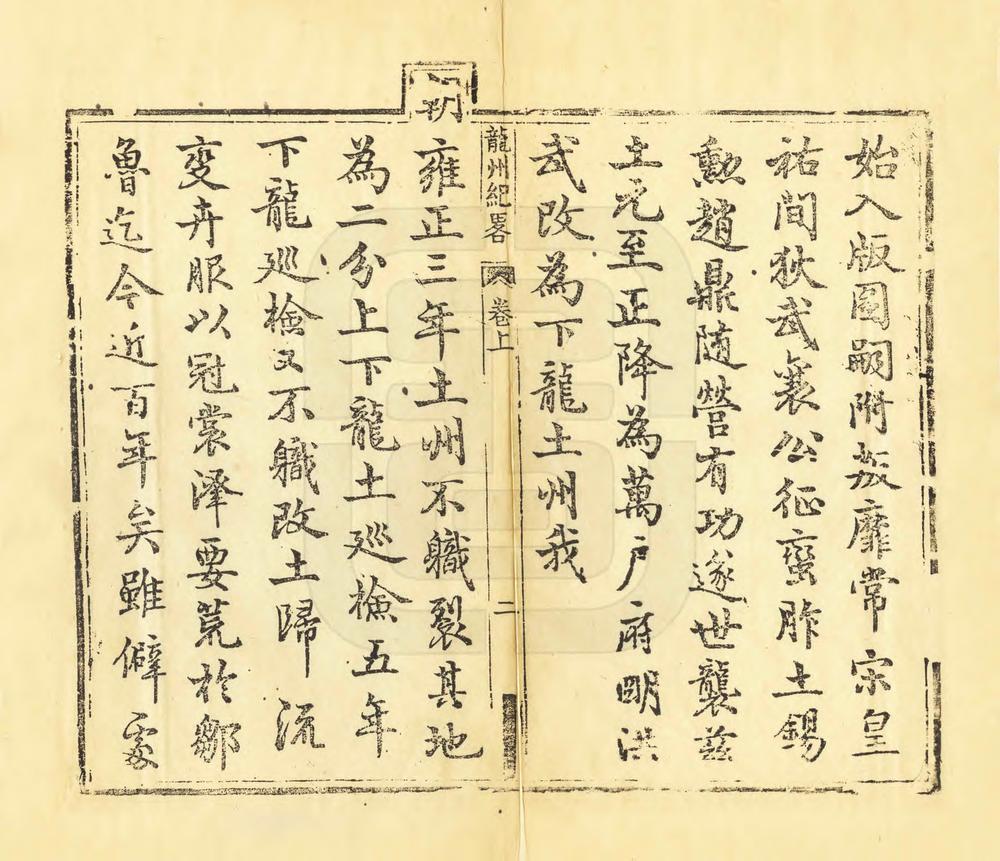 始入版圖嗣附叛靡常宗皇
祐間狄武襄公征蠻胙土錫
勳趙鼎隨營有功遂世襲茲
土元至正降為萬戶府明洪
武改為下龍土州我
龍州紀畧 卷上 二
朝
雍正三年土州不職裂其地
為二分上下龍土巡檢五年
下龍巡檢又不職改土歸流
變卉服以冠裳澤要荒於鄒
魯迄今近百年矣雖僻處